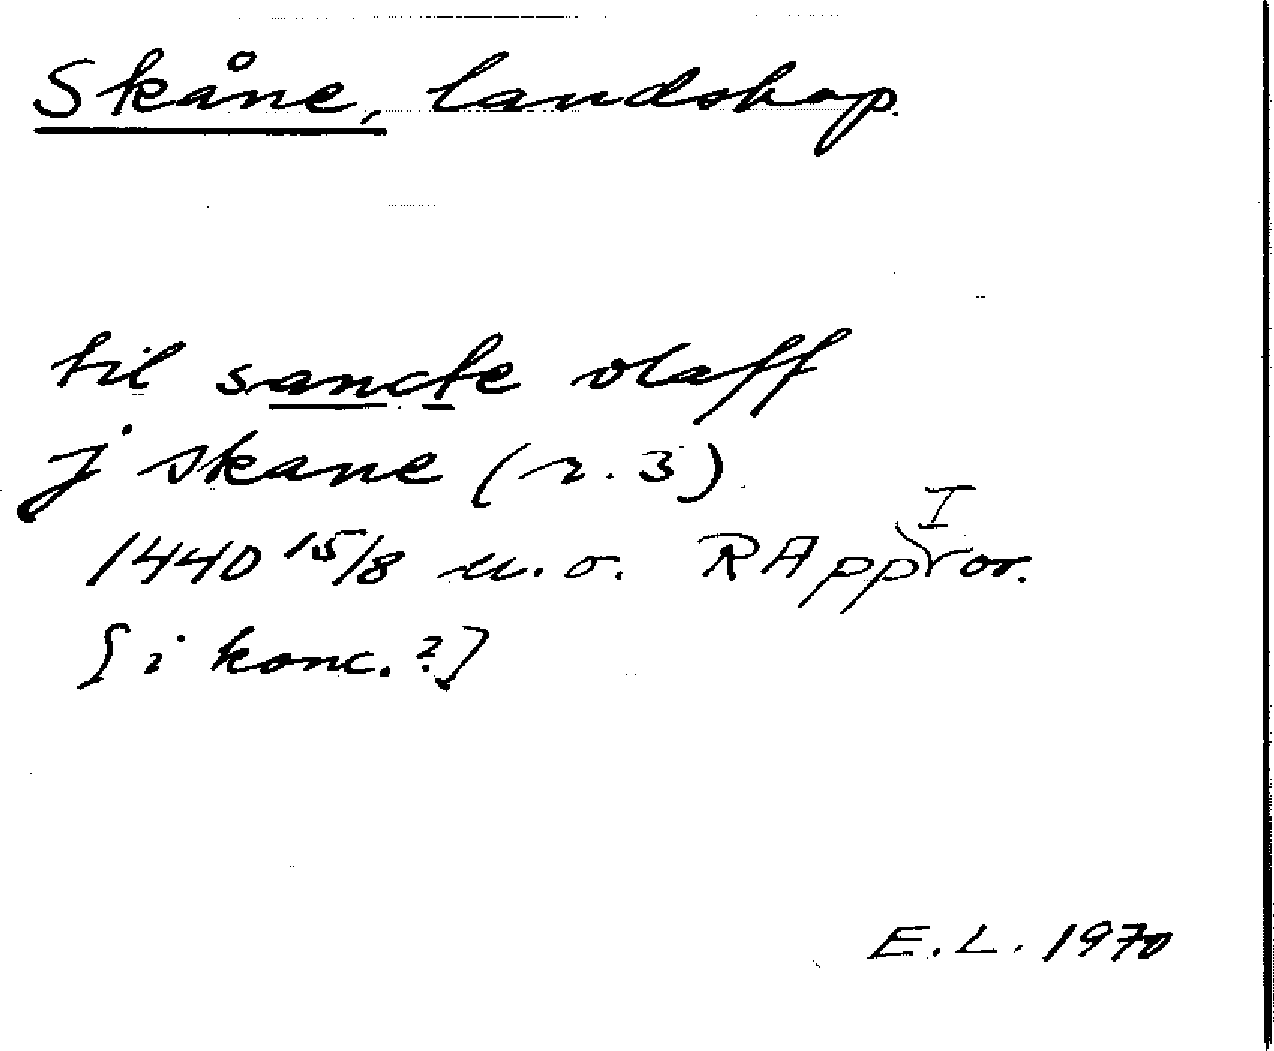 Skåne, landskap.
til sancte olaff
j skane (r. 3)
1440 15/8 u.o. RApp I or.
[i konc.?]
E.L. 1970